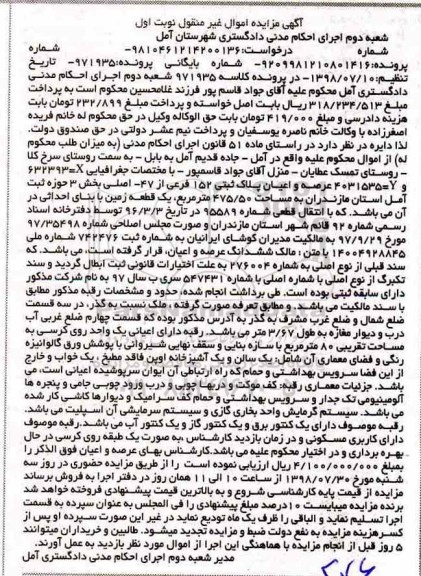 آگهی مزایده اموال غیر منقول نوبت اول
شعبه دوم اجرای احکام مدنی دادگستری شهرستان آمل
شماره درخواست:۹۸۱۰۴۶۱۲۱۴۲۰۰۱۳۶- شماره
پرونده:۹۲۰۹۹۸۱۲۱۰۸۰۱۴۱۶- شماره بایگانی پرونده:۹۷۱۹۳۵- تاریخ
تنظیم:۱۳۹۸/۰۷/۱۰- در پرونده کلاسه ۹۷۱۹۳۵ شعبه دوم اجرای احکام مدنی
دادگستری آمل محکوم علیه آقای جواد قاسم پور فرزند غلامحسین محکوم است به پرداخت
مبلغ ۳۱۸/۲۳۴/۵۱۳ ریال بابت اصل خواسته و پرداخت مبلغ ۲۳۲/۸۹۹ تومان بابت
هزینه دادرسی و مبلغ ۴۱۹/۰۰۰ تومان بابت حق الوکاله وکیل در حق محکوم له خانم فریده
اصغرزاده با وکالت خانم ناصره یوسفیان و پرداخت نیم عشر دولتی در حق صندوق دولت.
لذا دایره در نظر دارد در راستای ماده ۵۱ قانون اجرای احکام مدنی (به میزان طلب محکوم
له) از اموال محکوم علیه واقع در آمل - جاده قدیم آمل به بابل - به سمت روستای سرخ کلا
- روستای تمسک عطایان - منزل آقای جواد قاسمپور - با مختصات جغرافیایی X=۶۳۲۳۹۳
و Y=۴۰۳۱۵۳۵ عرصه و اعیان پلاک ثبتی ۱۵۲ فرعی از ۴۷- اصلی بخش ۳ حوزه ثبت
آمل استان مازندران به مساحت ۴۷۵/۵۰ مترمربع، یک قطعه زمین با بنای احداثی در
آن می باشد. که با انتقال قطعی شماره ۹۵۵۸۹ در تاریخ ۹۶/۳/۳ توسط دفترخانه اسناد
رسمی شماره ۹۲ قائم شهر استان مازندران و صورت مجلس اصلاحی شماره ۹۷/۳۵۴۹۸
مورخ ۹۷/۹/۲۹ به مالکیت مدیران کوشای ایرانیان به شماره ثبت ۷۴۲۴۷۶ شماره ملی
۱۴۰۰۴۹۲۸۸۴۵ متن: مالک ششدانگ عرصه و اعیان، قرار گرفته است، می باشد. که
سند قبلی از نوع اصلی به شماره ۲۷۶۰۰۴ به علت اختیارات قانونی ثبت ابطال گردید و سند
تکبرگ از نوع اصلی با شماره اصلی با شماره ۵۴۷۴۳۱ سری ب سال ۹۷ به نام شرکت مذکور
دارای سابقه ثبتی بوده است. طی برداشت انجام شده، حدود و مشخصات رقبه مذکور مطابق
با سند مالکیت می باشد. و مطابق تعرفه صورت گرفته، ملک نسبت به گذر، در سه قسمت
ضلع شمال و ضلع غرب مشرف به گذر به آدرس مذکور بوده که قسمت چهارم ضلع غربی آب
درب و دیوار مغازه به طول ۳/۶۷ متر می باشد. رقبه دارای اعیانی یک واحد روی کرسی به
مساحت تقریبی ۸۰ مترمربع با سازه بنایی و سقف نهایی شیروانی با پوشش ورق گالوانیزه
رنگی و فضای معماری آن شامل: یک سالن و یک آشپزخانه اوپن فاقد مطبخ، یک خواب و خارج
از این فضا سرویس بهداشتی و حمام که راه ارتباطی آن ایوان سرپوشیده اعیانی است، می
باشد. جزئیات معماری رقبه: کف موکت و درب ها چوبی و درب ورود چوبی جامی و پنجره ها
آلومینیومی تک جدار و سرویس بهداشتی و حمام کف سرامیک و دیوارها کاشی کار شده
می باشد. سیستم گرمایش واحد بخاری گازی و سیستم سرمایشی آن اسپلیت می باشد.
رقبه موصوف دارای یک کنتور برق و یک کنتور گاز و یک کنتور آب می باشد.رقبه موصوف
دارای کاربری مسکونی و در زمان بازدید کارشناس ،به صورت یک طبقه روی کرسی در حال
بهره برداری و در اختیار محکوم علیه می باشد.کارشناس بهای عرصه و اعیان فوق الذکر را
بمبلغ ۴/۱۰۰/۰۰۰/۰۰۰ ریال ارزیابی نموده است را از طریق مزایده حضوری در روز سه
شنبه مورخ ۱۳۹۸/۰۷/۳۰ از ساعت ۱۰ الی ۱۱ همان روز در دفتر اجرا به فروش برساند
مزایده از قیمت پایه کارشناسی شروع و به بالاترین قیمت پیشنهادی فروخته خواهد شد
برنده مزایده میبایست ۱۰درصد مبلغ پیشنهادی را فی المجلس به عنوان سپرده به قسمت
اجرا تسلیم نماید و الباقی را ظرف یک ماه تودیع نماید در غیر این صورت سپرده او پس از
کسرهزینه مزایده به نفع دولت ضبط و مزایده تجدید میشود. طالبین و خریداران میتوانند
۵ روز قبل از انجام مزایده با هماهنگی این اجرا از اموال مورد نظر بازدید به عمل آورند.
مدیر شعبه دوم اجرای احکام مدنی دادگستری آمل